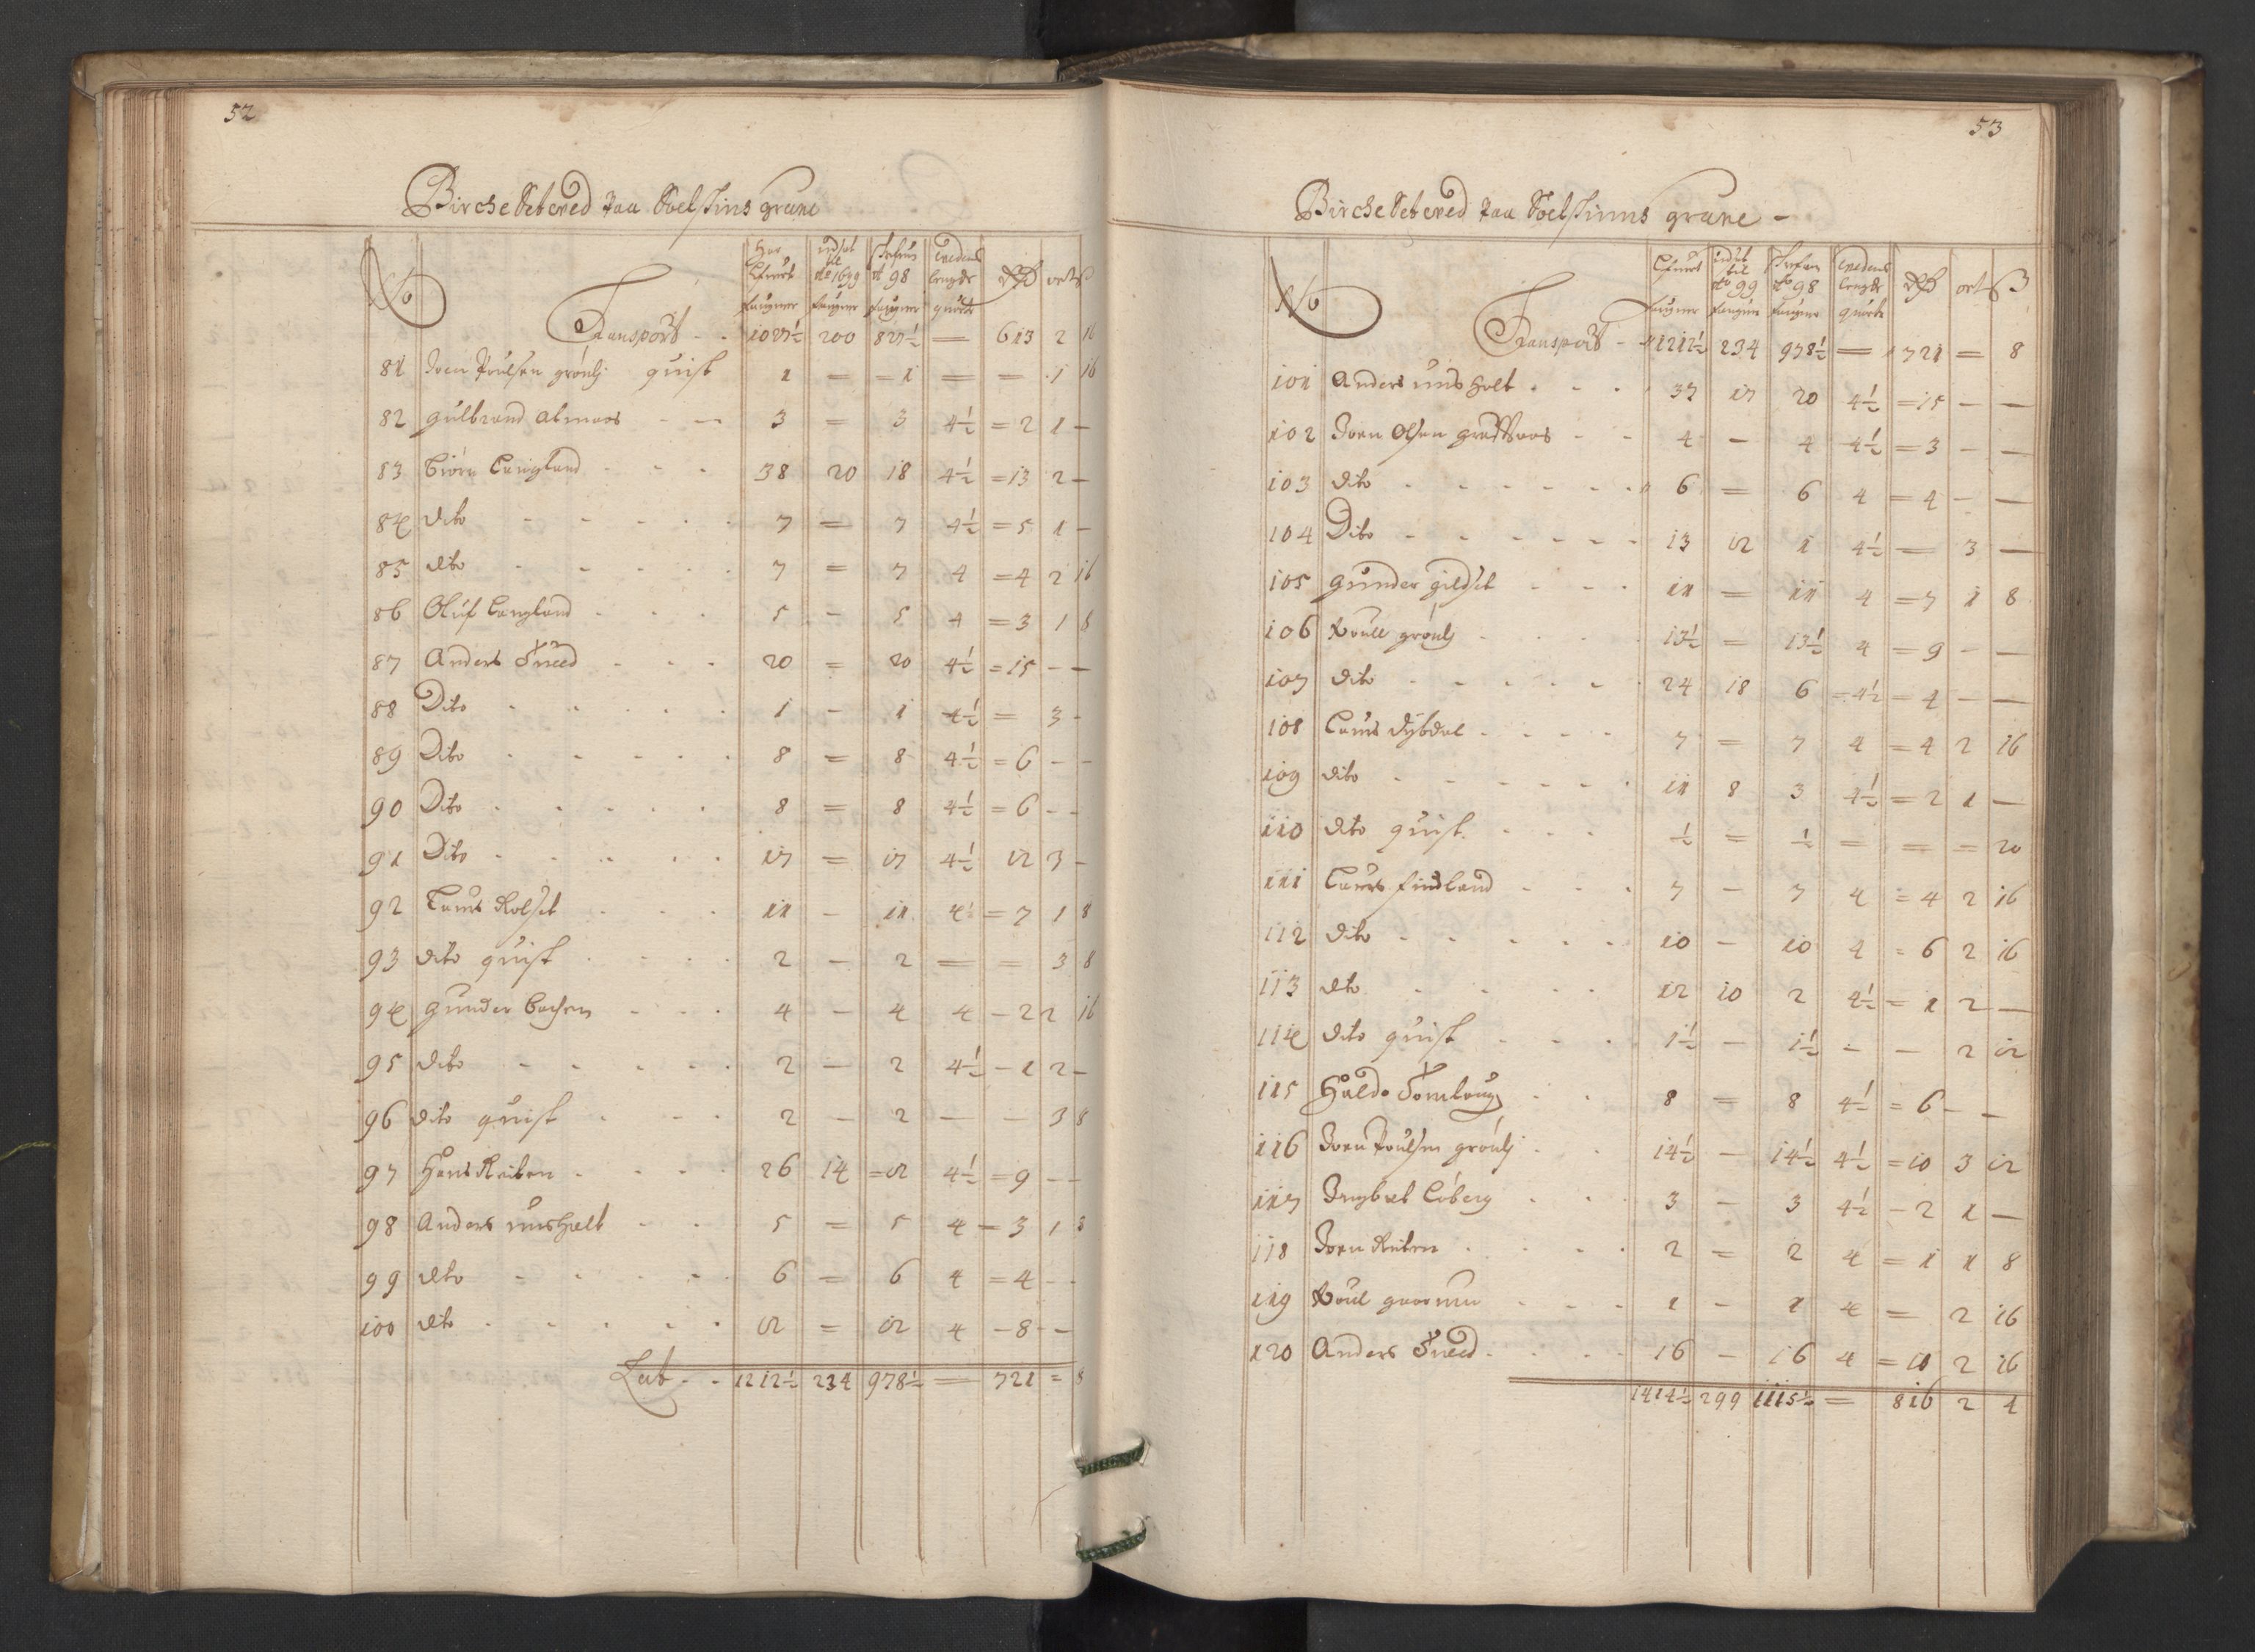 52
Birche Setved paa Soelskins grube
No | Har Lefuert faugner | udset til Ao 1699 faugner | Ao 98 faugner | Wedens lengde quarter | Rdr | ort | ß
Transport - - 1027½ 200 827½ = 613 2 16
81 Joen Poulsen grönlj quist 1 = - 1 = = 1 16
82 gulbrand Aamaas - - 3 = 3 4½ = 2 1 -
83 Biörn Langland - - - 38 20 18 4½ = 13 2 -
84 dito - - - - - 7 = 7 4½ = 5 1 -
85 dito - - - - - 7 = 7 4 = 4 2 16
86 Oluf Langland - - - 5 - 5 4 = 3 1 8
87 Anders Tneed - - - 20 = 20 4½ = 15 - -
88 Dito - - - - - 1 - 1 4½ = 3 -
89 Dito - - - - - 8 = 8 4½ = 6 - -
90 Dito - - - - - 8 = 8 4½ = 6 - -
91 Dito - - - - - 17 = 17 4½ 12 3 -
92 Laurs Rolset - - - 11 - 11 4 = 7 1 8
93 dito quist - - - - 2 - 2 = = 3 8
94 gunder Bachen - - - 4 - 4 4 - 2 2 16
95 dito - - - - - 2 - 2 4½ - 1 2 -
96 dito quist - - - 2 - 2 - - 3 8
97 Hans Reiten - - - - 26 14 = 12 4½ = 9 - -
98 Anders unsholt - - 5 = 5 4 - 3 1 8
99 dito - - - - - 6 = 6 4 = 4 - -
100 dito - - - - - 12 = 12 4 - 8 - -
Lat - - 1212½ 234 978½ = 721 = 8
53
Birche Setved paa Soelskinns grube -
No | Lefuert faugner | udset til Ao 99 faugner | Ao 98 faugner | Wedens lengde quarter | Rdr | ort | ß
Transport - 1212½ 234 978½ = 721 = 8
101 Anders unsholt - - - 37 17 20 4½ = 15 - -
102 Joen Olsen - - 4 - 4 4½ = 3 - -
103 dito - - - - - - 6 = 6 4 = 4 - -
104 Dito - - - - - - 13 12 1 4½ = 3 -
105 gunder gildset - - - 11 = 11 4 = 7 1 8
106 Poull grönlj - - - - 13½ = 13½ 4 = 9 - -
107 dito - - - - - 24 18 6 = 4½ = 4 - -
108 Laurs dybdal - - - - 7 = 7 4 = 4 2 16
109 dito - - - - - - 11 8 3 4½ = 2 1 -
110 dito quist - - - ½ = ½ = = = 20
111 Laurs findland - - - 7 - 7 4 = 4 2 16
112 dito - - - - - 10 - 10 4 = 6 2 16
113 dto - - - - 12 10 2 4½ = 1 2 -
114 dito quist - - - 1½ - 1½ - - 2 12
115 Haldo Tomloug - - 8 = 8 4½ = 6 - -
116 Joen Poulsen grönlj - - 14½ - 14½ 4½ = 10 3 12
117 Ingbret Löberg - - - 3 - 3 4½ - 2 1 -
118 Joen Reiten - - - - 2 = 2 4 = 1 1 8
119 Poul - - - 1 - 1 4 = 2 16
120 Anders Tneed - - - - 16 - 16 4 = 10 2 16
1414½ 299 1115½ = 816 2 4